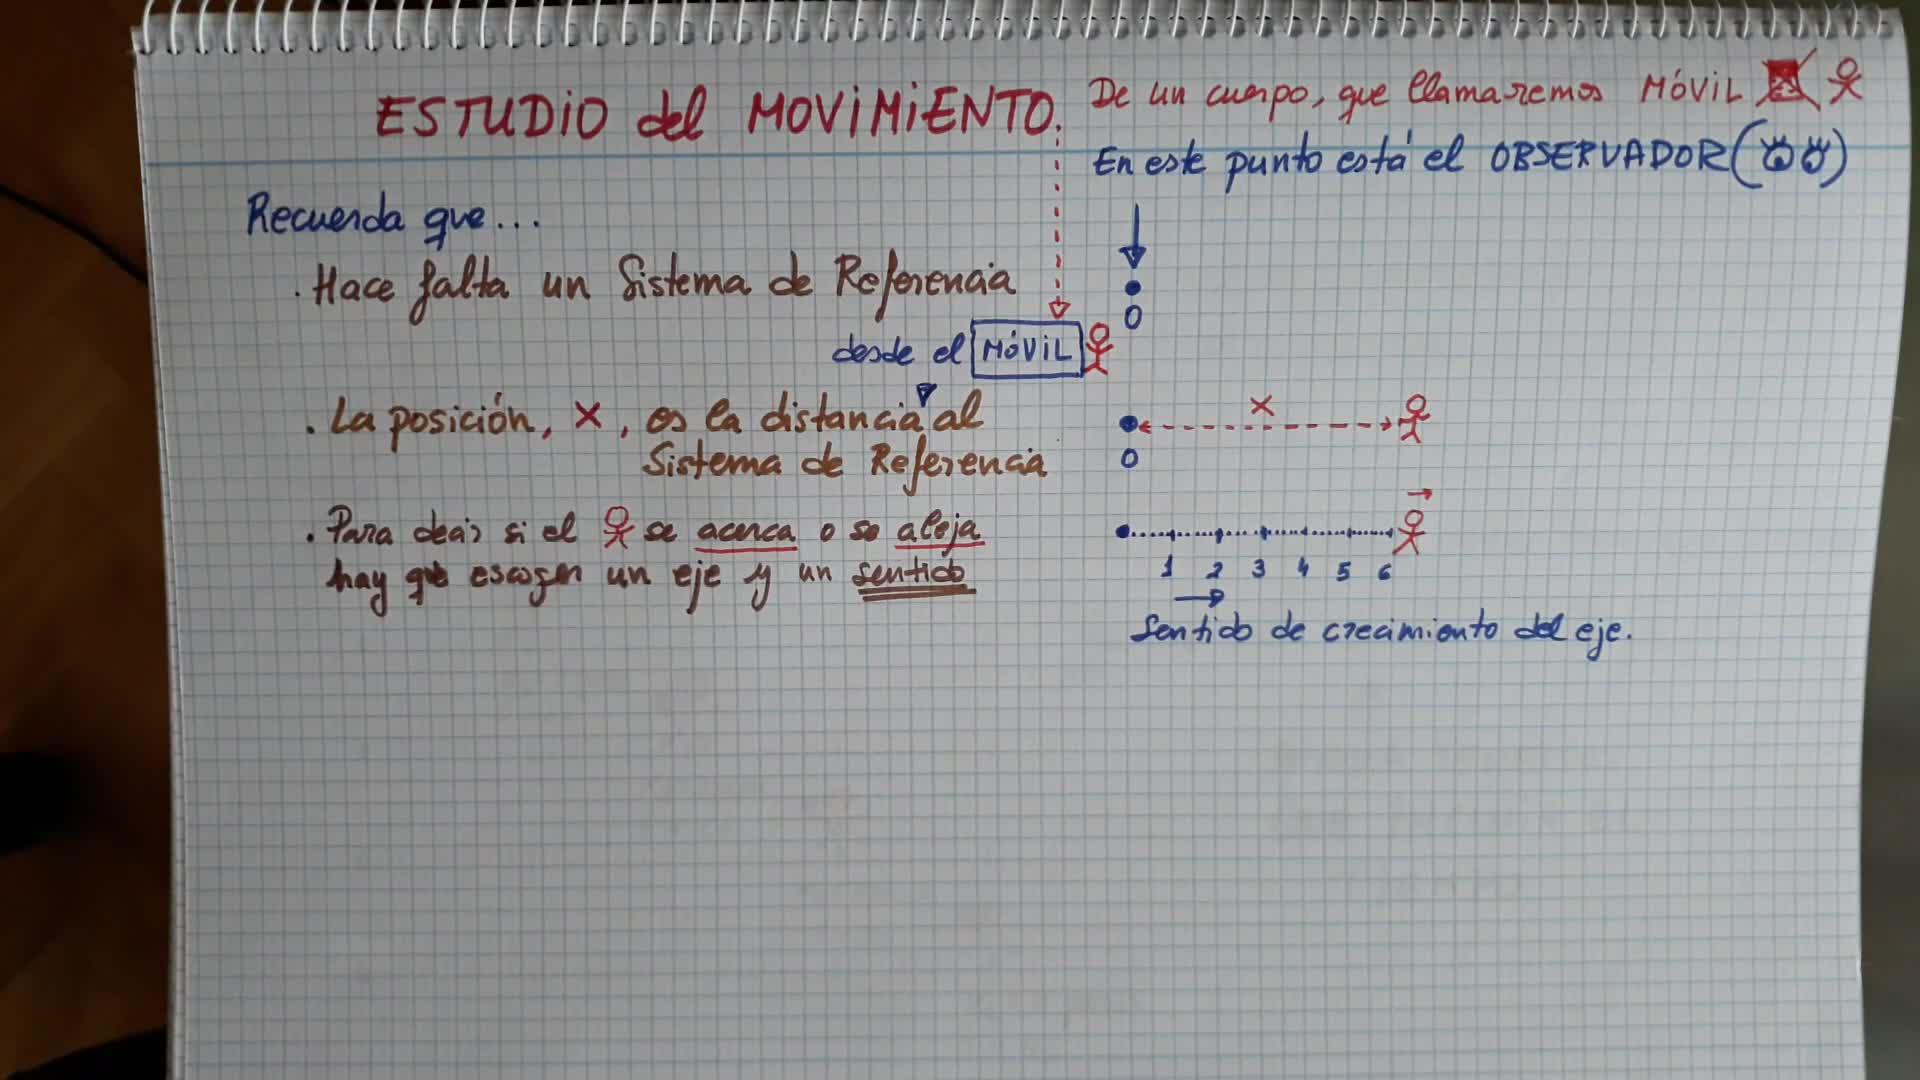 ESTUDIO del MOVIMIENTO.
De un cuerpo, que llamaremos MÓVIL
En este punto está el OBSERVADOR
Recuerda que...
. Hace falta un Sistema de Referencia
O
desde el MÓVIL
. La posición, X, es la distancia al
Sistema de Referencia
X
O
. Para decir si el se acerca o se aleja
hay que escoger un eje y un sentido
1 2 3 4 5 6
Sentido de crecimiento del eje.